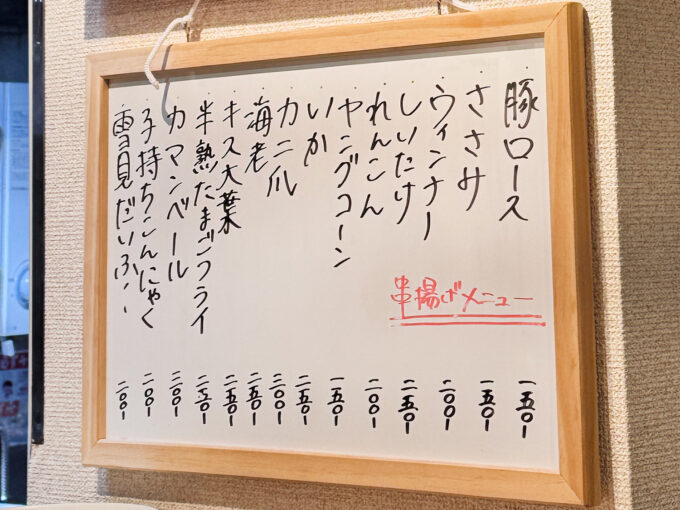 豚ロース 一五〇-
ささみ 一五〇-
ウィンナー 二〇〇-
しいたけ 二五〇-
れんこん 二〇〇-
ヤングコーン 一五〇-
いか 二五〇-
カニ爪 三〇〇-
海老 二五〇-
キス大葉 二五〇-
半熟たまごフライ 二五〇-
カマンベール 二〇〇-
子持ちこんにゃく 二〇〇-
雪見だいふく 二〇〇-
串揚げメニュー